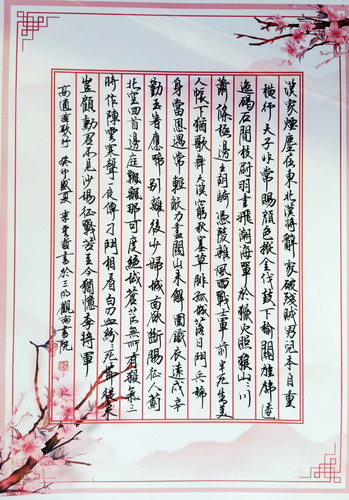 漢家煙塵在東北漢將辭家破殘賊男兒本自重
橫行天子非常賜顏色摐金伐鼓下榆關旌旆逶
迤碣石間校尉羽書飛瀚海單于獵火照狼山山川
蕭條極邊土胡騎憑陵雜風雨戰士軍前半死生美
人帳下猶歌舞大漠窮秋塞草腓孤城落日鬥兵稀
身當恩遇常輕敵力盡關山未解圍鐵衣遠戍辛
勤玉箸應啼別離後少婦城南欲斷腸征人薊
北空回首邊庭飄飖那可度絕域蒼茫無所有殺氣三
時作陣雲寒聲一夜傳刁鬥相看白刃血紛紛死節從來
豈顧勳君不見沙場征戰苦至今猶憶李將軍
高適燕歌行 盛夏 李書於三明觀書院